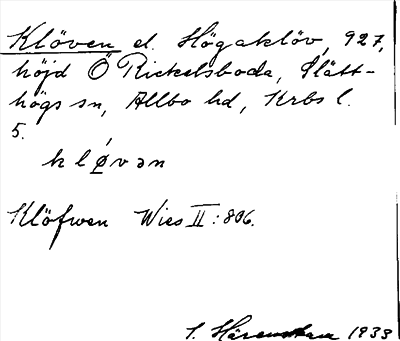 Klöven el. Högaklöv, 927,
höjd Ö Rickelsboda, Slätt-
högs sn, Allbo hd, Krbs l.
5.
kløvən
Klöfwen Wies II:806.
1933